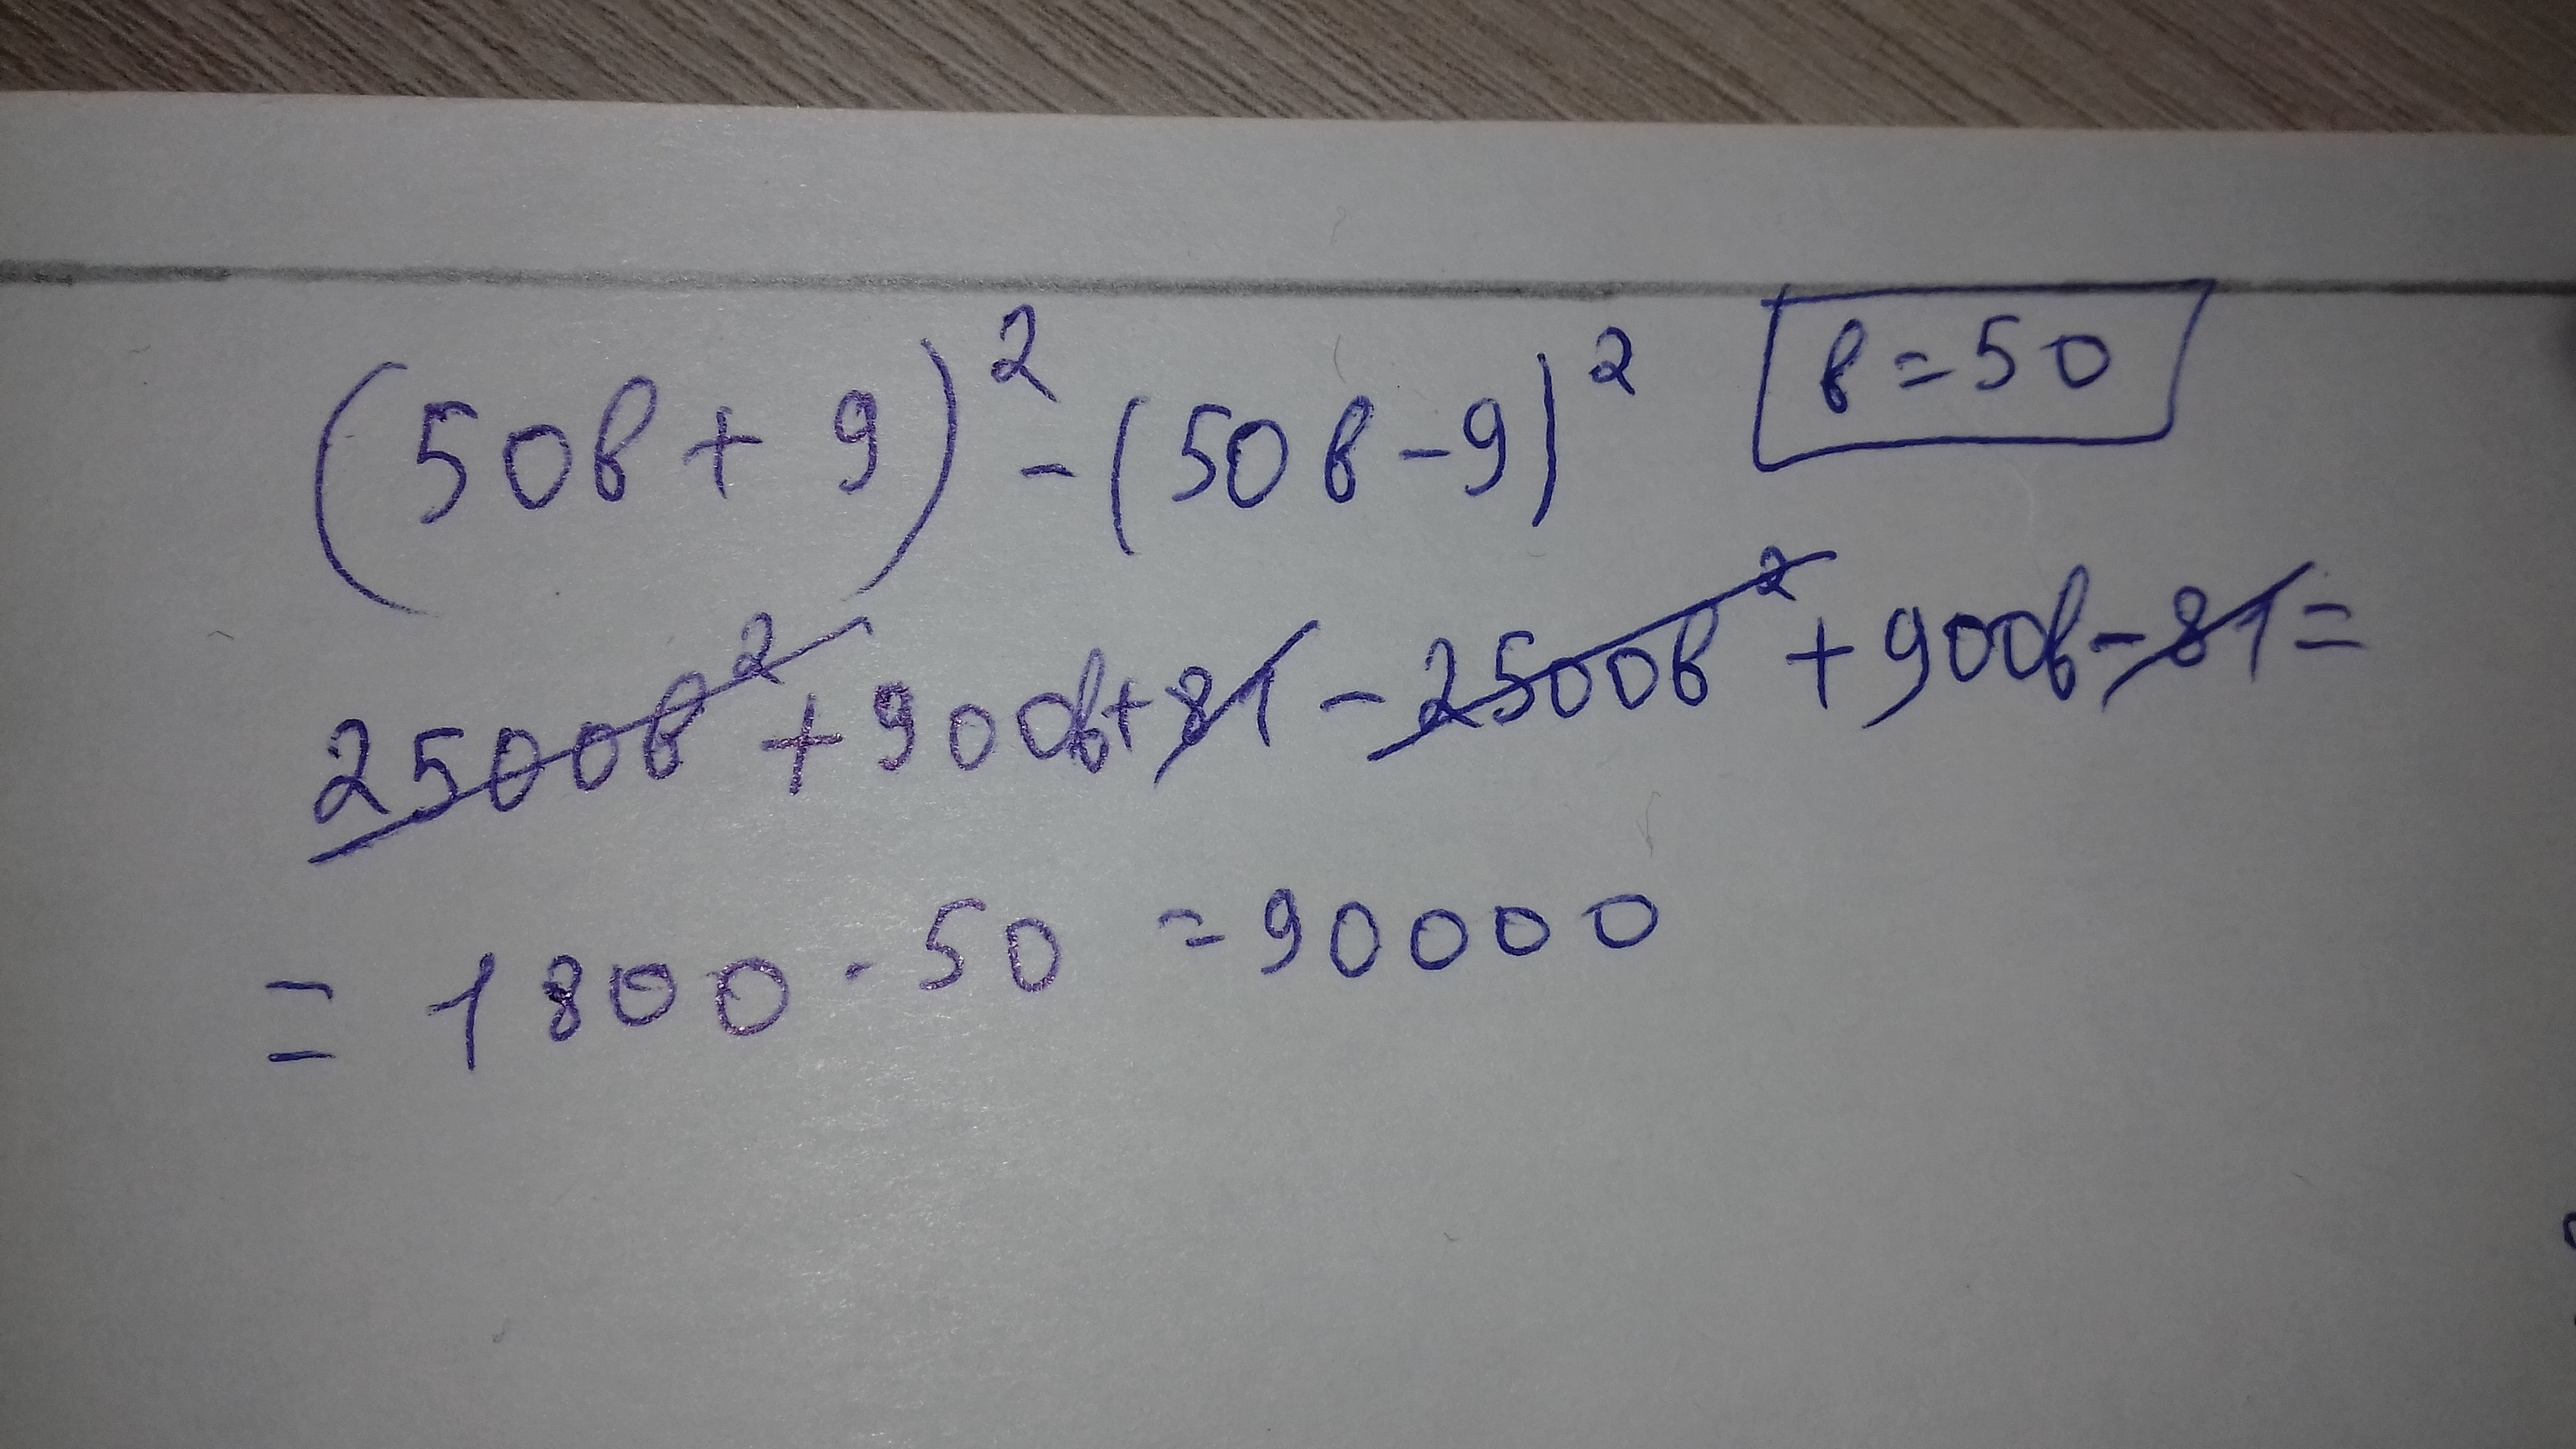 (50в + 9)² - (50в - 9)² в = 50
2500в² + 900в + 81 - 2500в² + 900в - 81 =
= 1800 · 50 = 90000